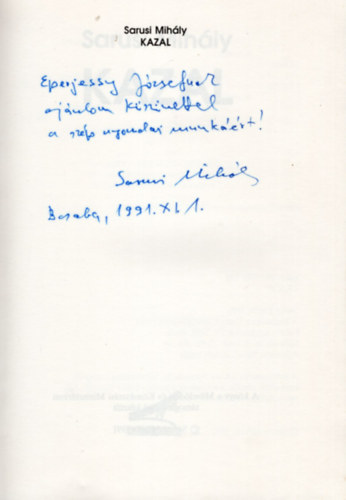 Sarusi Mihály
KAZAL
Eperjessy Józsefnek
ajánlom köszönettel
a szép nyomdai munkáért!
Sarusi Mihály
Bcsaba, 1991. XI. 1.